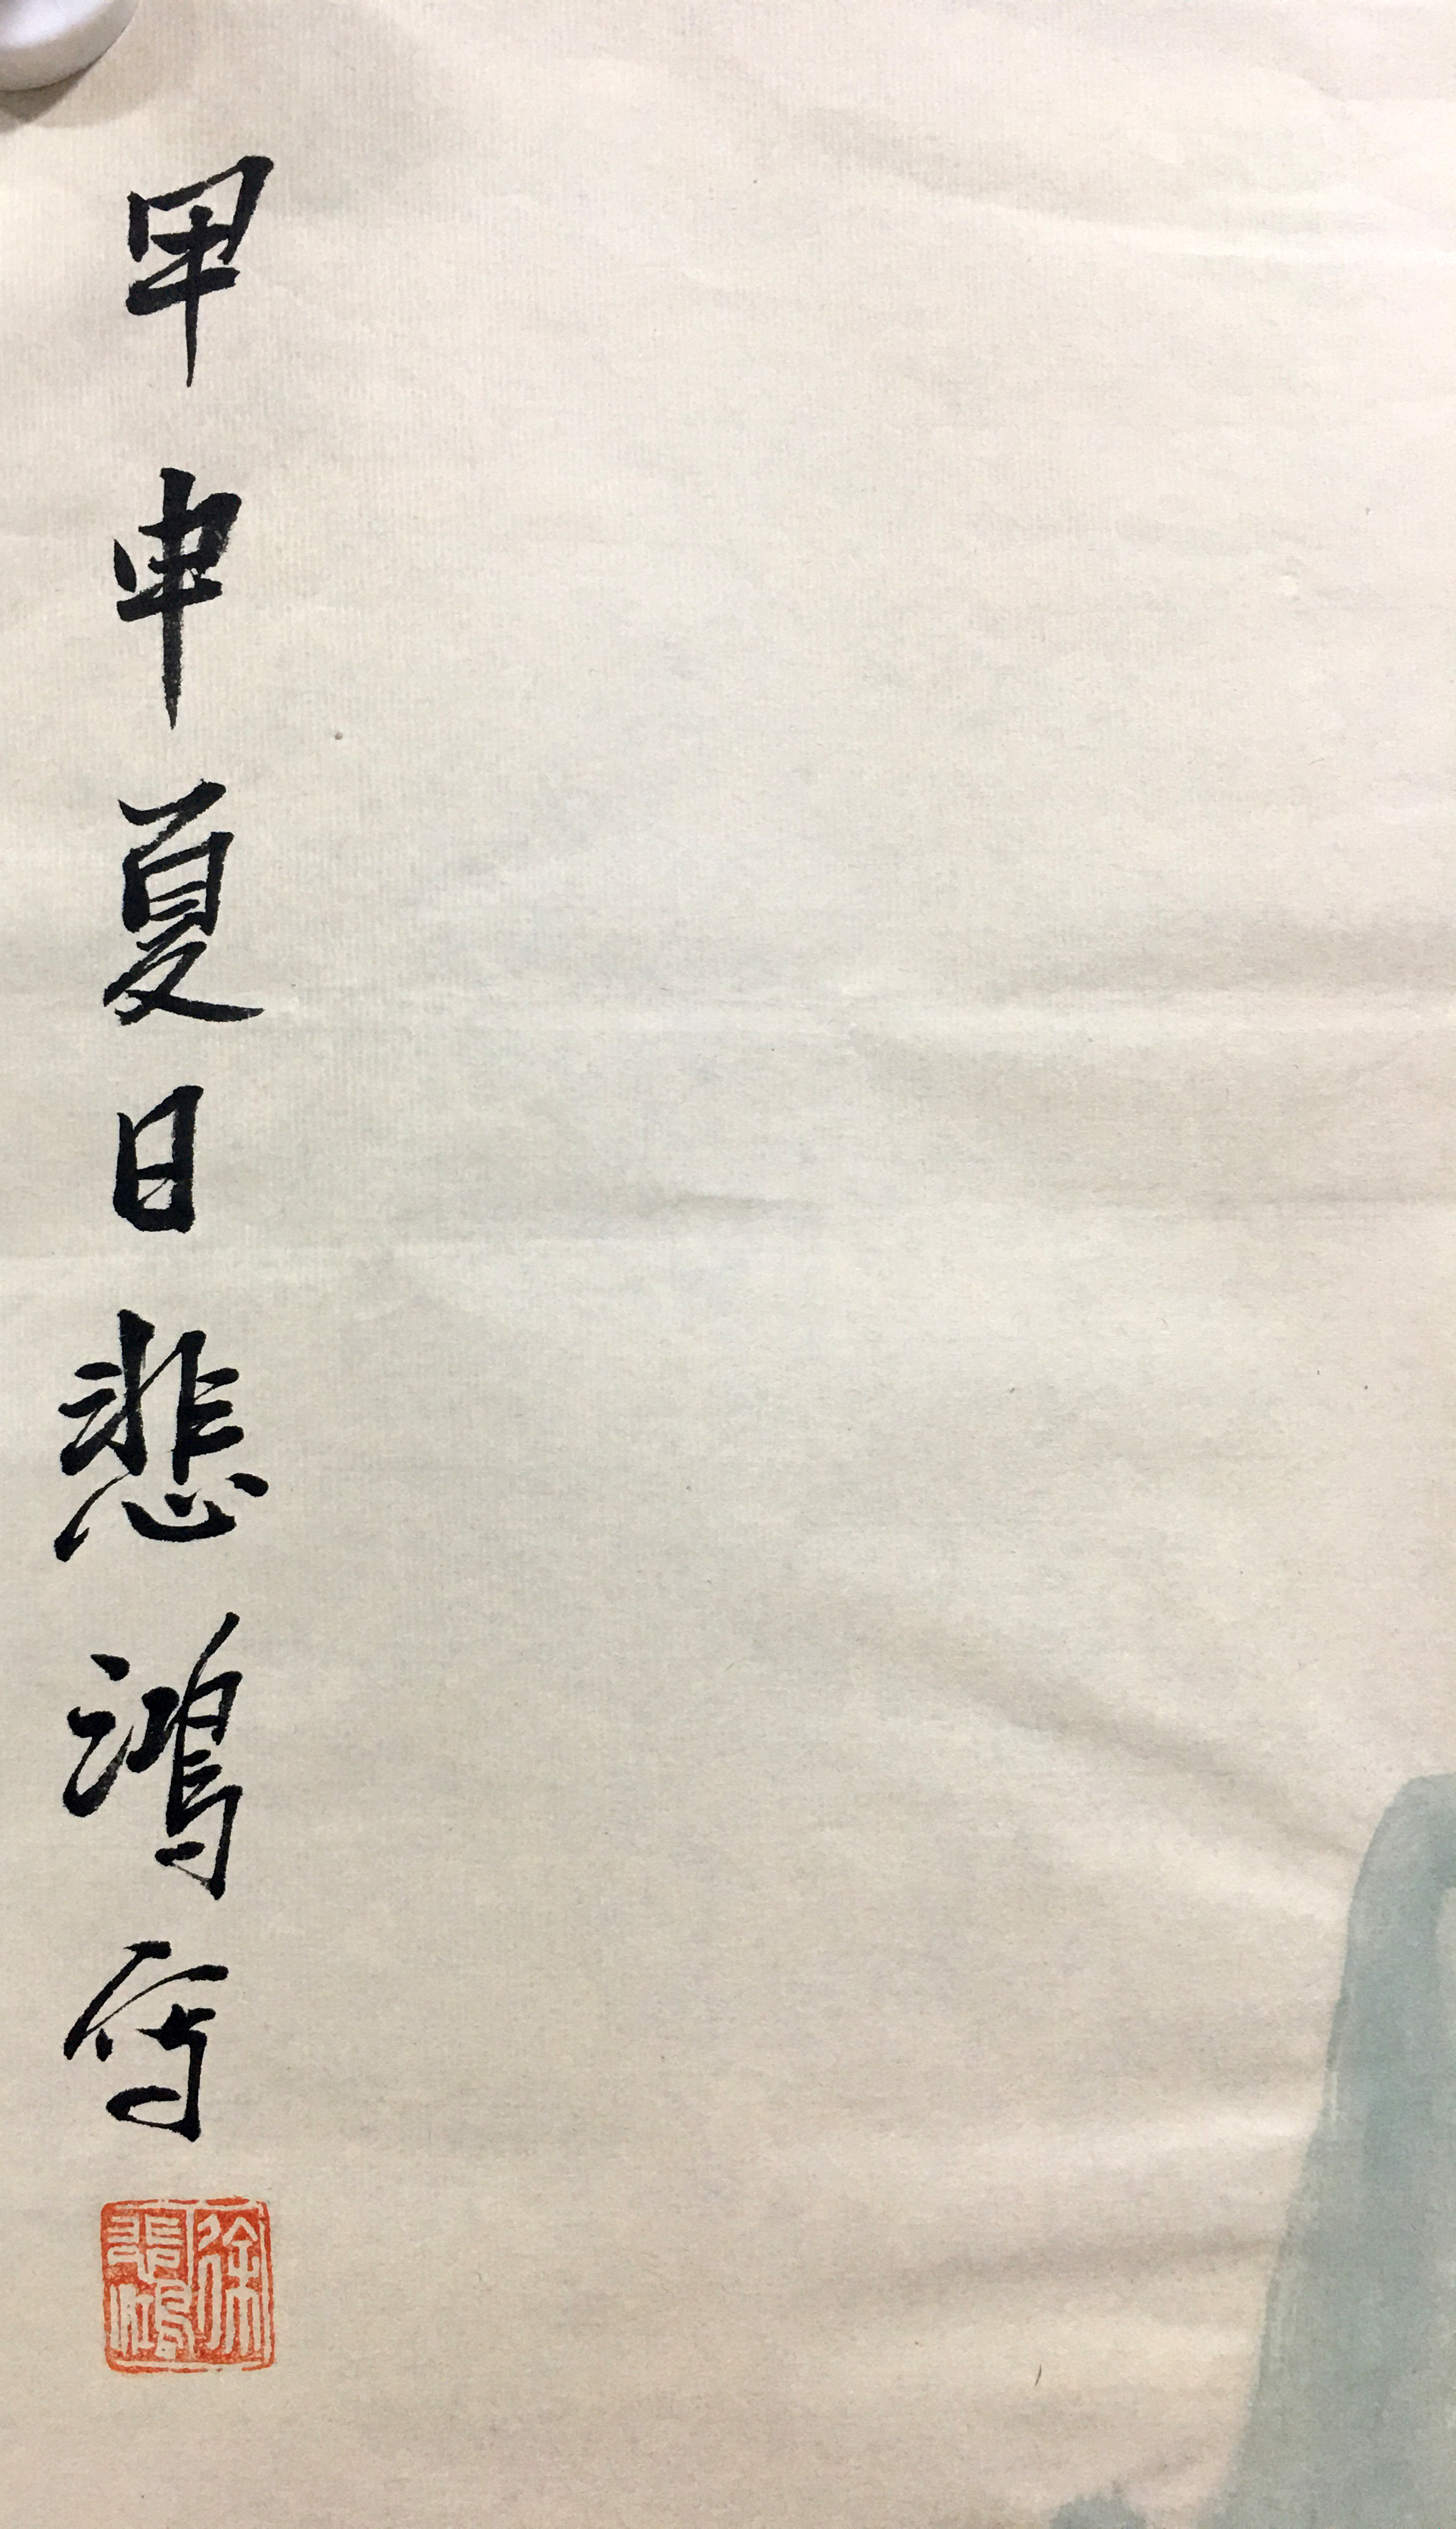 甲申夏日悲鴻写
徐
悲鴻